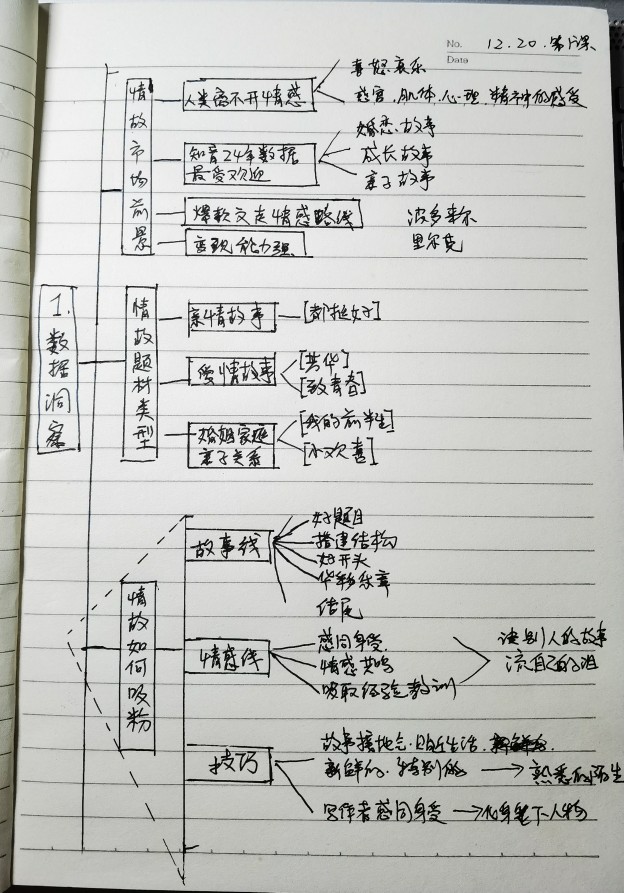 No. 12.20.第1课
Data
喜怒哀乐
人类离不开情感
感官.肌体.心理.精神的感受
婚恋故事
知音24年数据
最受欢迎
成长故事
亲子故事
情故市场前景
爆款文走情感路线
波多莱尔
变现能力强
里尔克
1.数据洞察
情故题材类型
亲情故事
[都挺好]
爱情故事
[芳华]
[致青春]
婚姻家庭
亲子关系
[我的前半生]
[小欢喜]
情故如何吸粉
故事线
好题目
搭建结构
好开头
华彩乐章
结尾
情感线
感同身受
情感共鸣
吸取经验教训
读别人的故事
流自己的泪
技巧
故事接地气.贴近生活.
新鲜的.特别的
熟悉的陌生
写作者感同身受
化身笔下人物